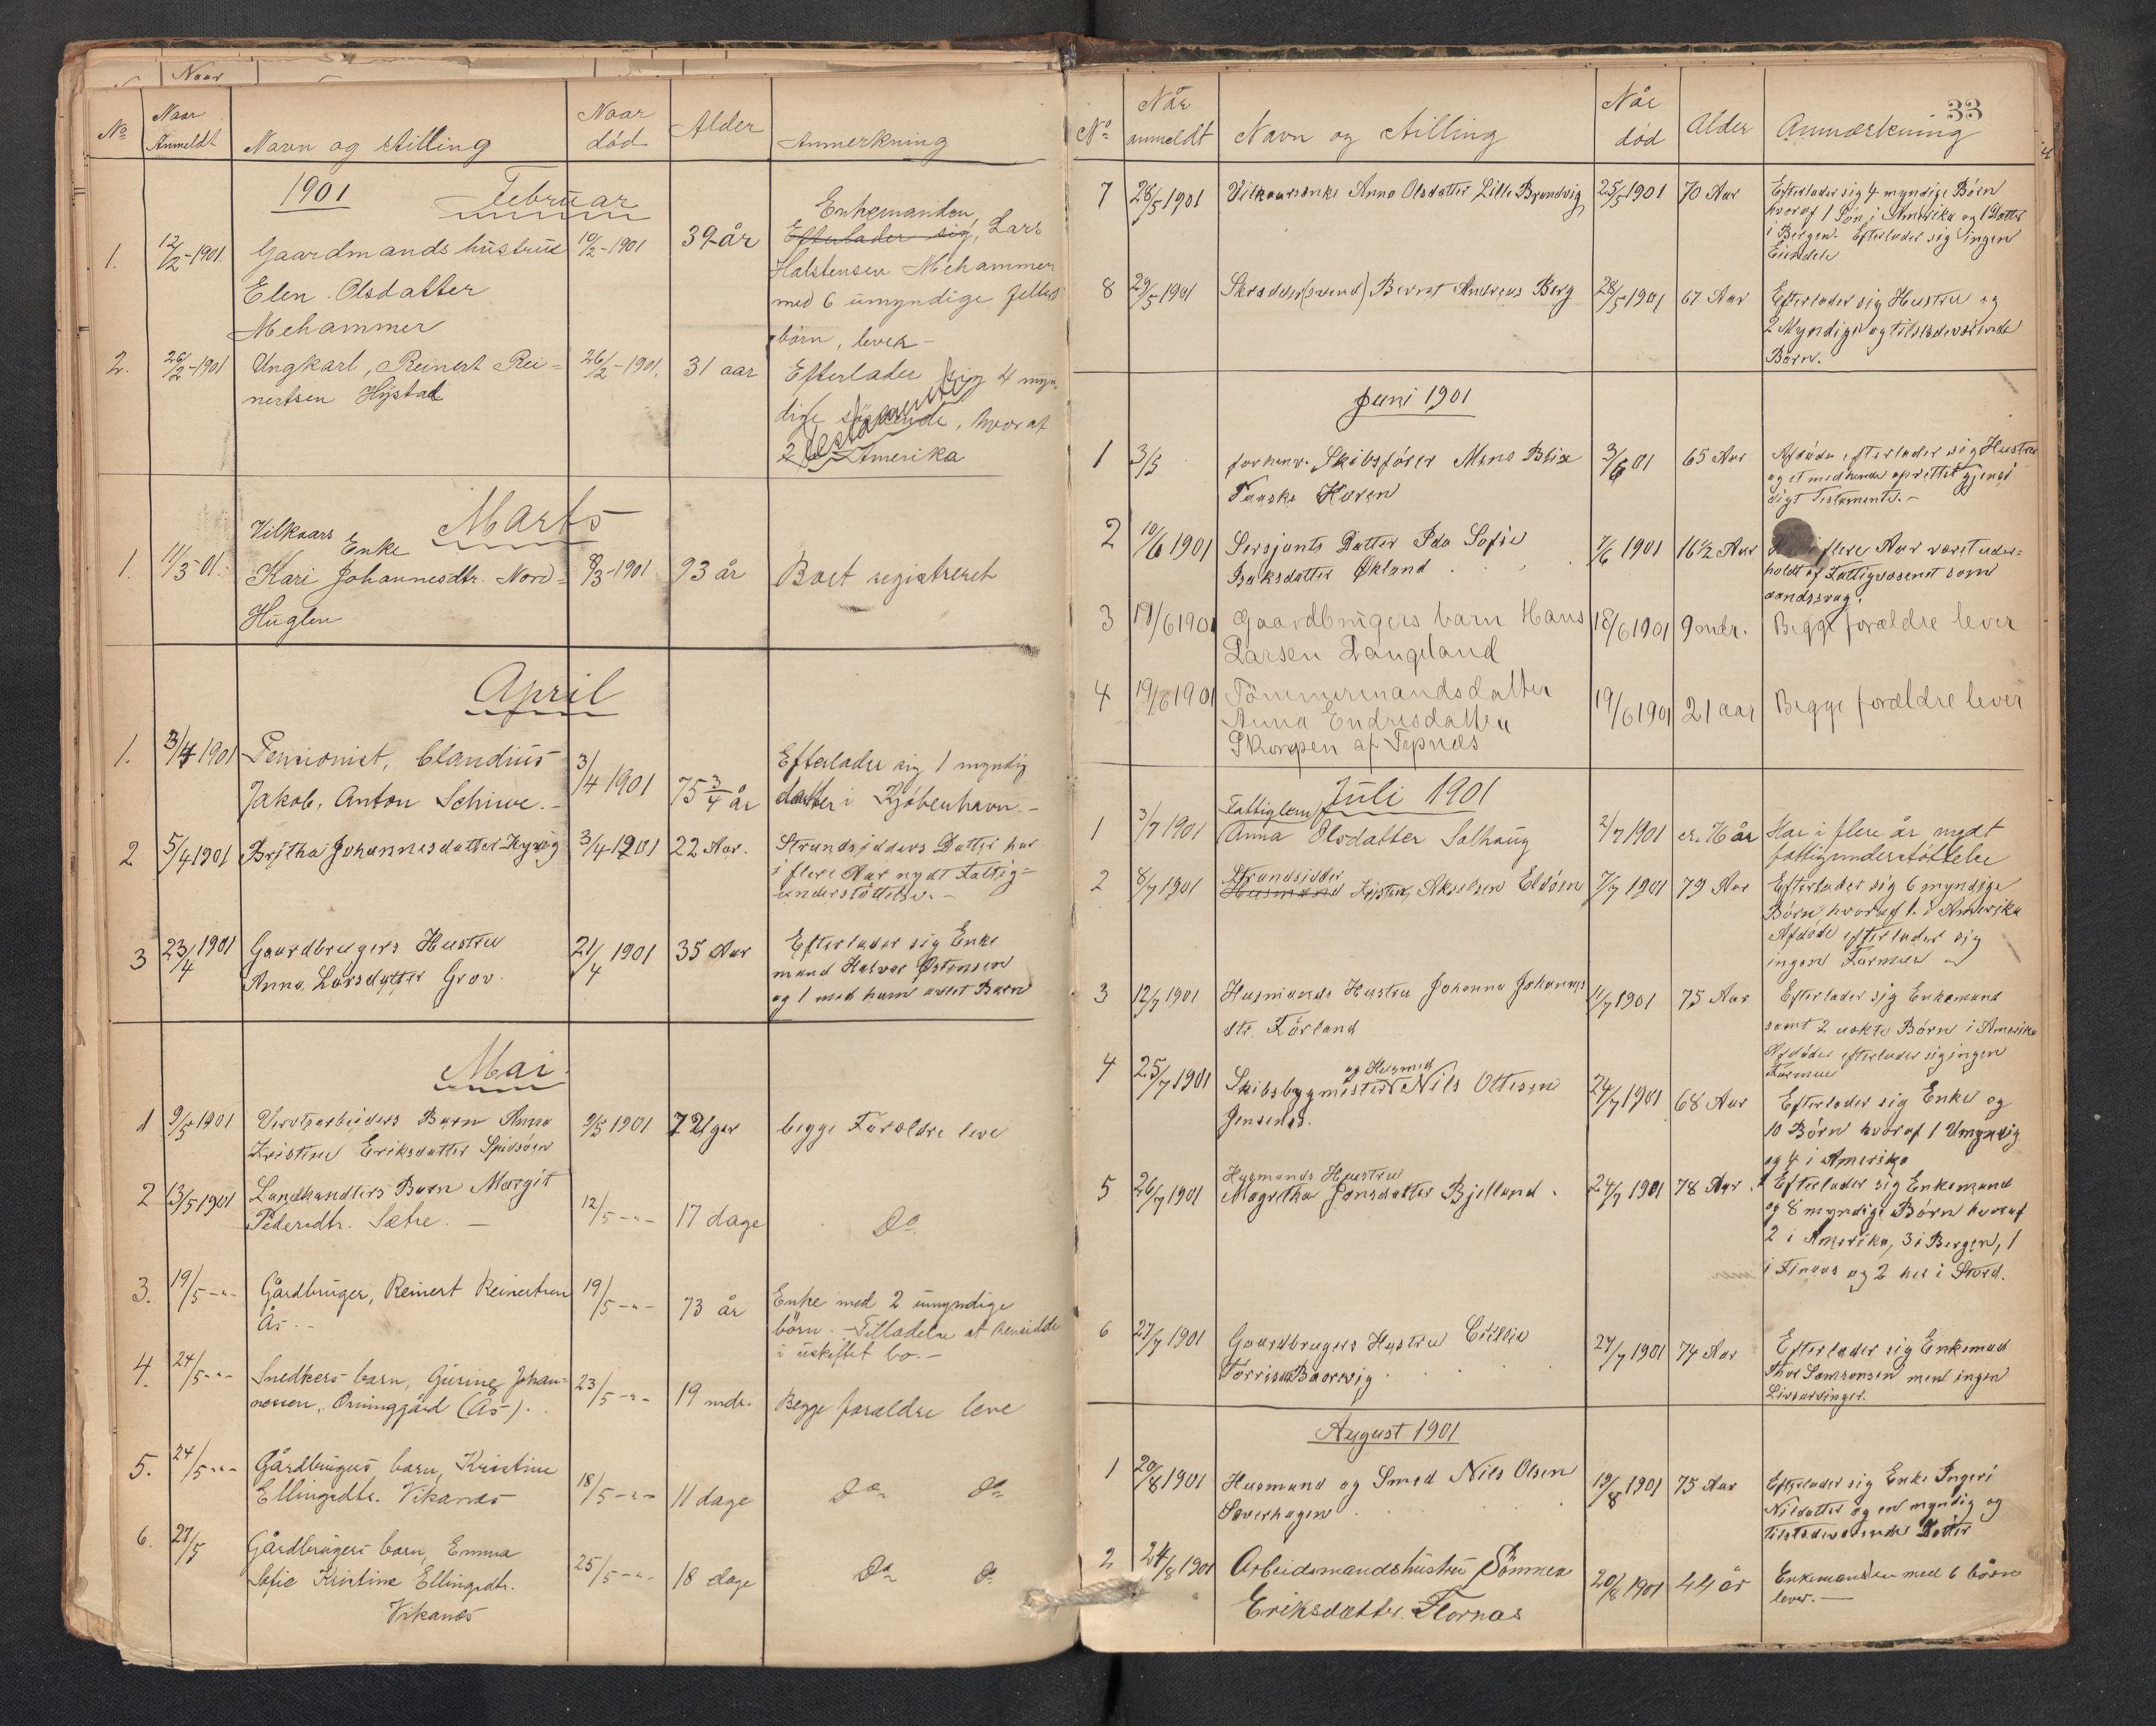 Naar
No
Naar
Anmeldt
Navn og stilling
Naar
død
Alder
Anmerkning
1901
Februar
1.
12/2-1901.
Gaardmandshustrue
Elen Olsdatter
Mehammer
10/2-1901
39 år
Enkemanden,
Efterlader sig, Lars
Halstensen Mehammer
med 6 umyndige felles
børn, lever -
2.
26/2-1901
Ungkarl, Reinert Rei=
nertsen Hystad
26/2-1901.
31 aar
Efterlader sig 4 myn-
dige søskende, hvoraf
2 i Amerika
Testamente
Marts
1.
11/3-01.
Vilkaars
Enke
Kari Johannesdtr. Nord=
Huglen
8/3-1901
93 år
Boet registreret
April
1.
3/4 1901
Pensionist, Claudius
Jakob, Anton Schiwe.-
3/4 1901
75 3/4 år
Efterlader sig 1 myndig
datter i Kjøbenhavn.-
2
5/4 1901
Britha Johannesdatter
3/4-1901
22 Aar.
Strandsidders Datter har
i flere Aar nydt Fattig=
understøttelse.-
3
23/4 1901
Gaardbrugers Hustru
Anna Larsdatter Grov.
21/4 1901
35 Aar
Efterlader sig Enke
mand Halvor Østensen
og 1 med ham avlet Barn
Mai
1
9/5 1901
Verftsarbeiders Barn Anna
Kristine Eriksdatter
9/5 1901
begge Forældre leve
2
13/5 1901
Landhandlers Barn Margit
Pedersdtr. Sætre. -
12/5 -"-
17 dage
Do
3.
19/5 -"-
Gårdbruger, Reinert Reinertsen
Ås.-
19/5 -"-
73 år
Enke med 2 umyndige
børn. - Tilladelse at hensidde
i uskiftet bo.-
4.
24/5 -"-
Snedkers barn, Johan=
nessen, (Ås).
23/5 -"-
19 mdr.
Begge forældre leve
5.
24/5 -"-
Gårdbrugers barn, Kristine
Ellingsdtr. Vikanes
18/5 -"-
11 dage
Do Do
6.
27/5
Gårdbrugers barn, Emma
Sofie Kristine Ellingsdtr.
Vikanes
25/5 -"-
18 dage
Do Do
33
No
Når
anmeldt
Navn og stilling
Når
død
Alder
Anmærkning
7
28/5 1901
Vilkaarsenke Anna Olsdatter Lille Brandvig
25/5 1901
70 Aar
Efterlader sig 4 myndige Børn
hvoraf 1 Søn i Amerika og 1 Datter
i Bergen. Efterlader sig ingen
Eiendele
8
29/5 1901
Skrædder(svend) Berent Andreas Berg
28/5 1901
67 Aar
Efterlader sig Hustru og
2 Myndige og tilstedeværende
Børn.
Juni 1901
1
3/3
forhenv. Skibsfører Mons Blix
3/6 01
65 Aar
Afdøde efterlader sig Hustru
og et med hende oprettet gjensi
digt Testamente.-
2
10/6 1901
Sersjants Datter Ida Sofie
Baksdatter Økland
7/6 1901
16½ Aar
flere Aar været under=
holdt af Fattigvæsenet som
aandssvag.
3
19/6 1901
Gaardbrugers barn Hans
Larsen Langeland
18/6 1901
9 mdr.
Begge forældre lever
4
19/6 1901
Tømmermandsdatter
Anna Endresdatter
Skorpen af Tysnes
19/6 1901
21 aar
Begge forældre lever
Juli 1901
1
3/7 1901
Fattiglem
Anna Olsdatter Solhaug
2/7 1901
Har i flere år nydt
fattigunderstøttelse
2
8/7 1901
Strandsidder
Husmand Kristen Akselsen Eldøen
7/7 1901
79 Aar
Efterlader sig 6 myndige
Børn, hvoraf 1. i Amerika
Afdøde efterlader sig
ingen Formue
3
12/7 1901
Husmands Hustru Johanna Johannes
dtr. Førland
11/7 1901
75 Aar
Efterlader sig Enkemand
samt 2 voksne Børn i Amerika
Afdøde efterlader sig ingen
Formue
4
25/7 1901
og Husmd
Skibsbygmester Nils Ottesen
Jensenes.
24/7 1901
68 Aar
Efterlader sig Enke og
10 Børn hvoraf 1 Umyndig
og 4 i Amerika
5
26/7 1901
Husmands Hustru
Magretha Jonsdatter Bjelland.
24/7 1901
78 Aar.
Efterlader sig Enkemand
og 8 myndige Børn hvoraf
2 i Amerika, 3 i Bergen, 1
i Finaas og 2 her i Stord.
6
27/7 1901
Gaardbrugers Hustru Cicilie
27/7 1901
74 Aar
Efterlader sig Enkemand
Thor Samsonsen men ingen
Livsarvinger.
August 1901
1
20/8 1901
Husmand og Smed Nils Olsen
Sæverhagen
19/8 1901
75 Aar
Efterlader sig Enke Ingeri
Nilsdatter og en myndig og
tilstedeværende Datter
2
24/8 1901
Arbeidsmandshustru
Eriksdatter. Flornæs
20/8 1901
44 år
Enkemanden med 6 børn
lever.-